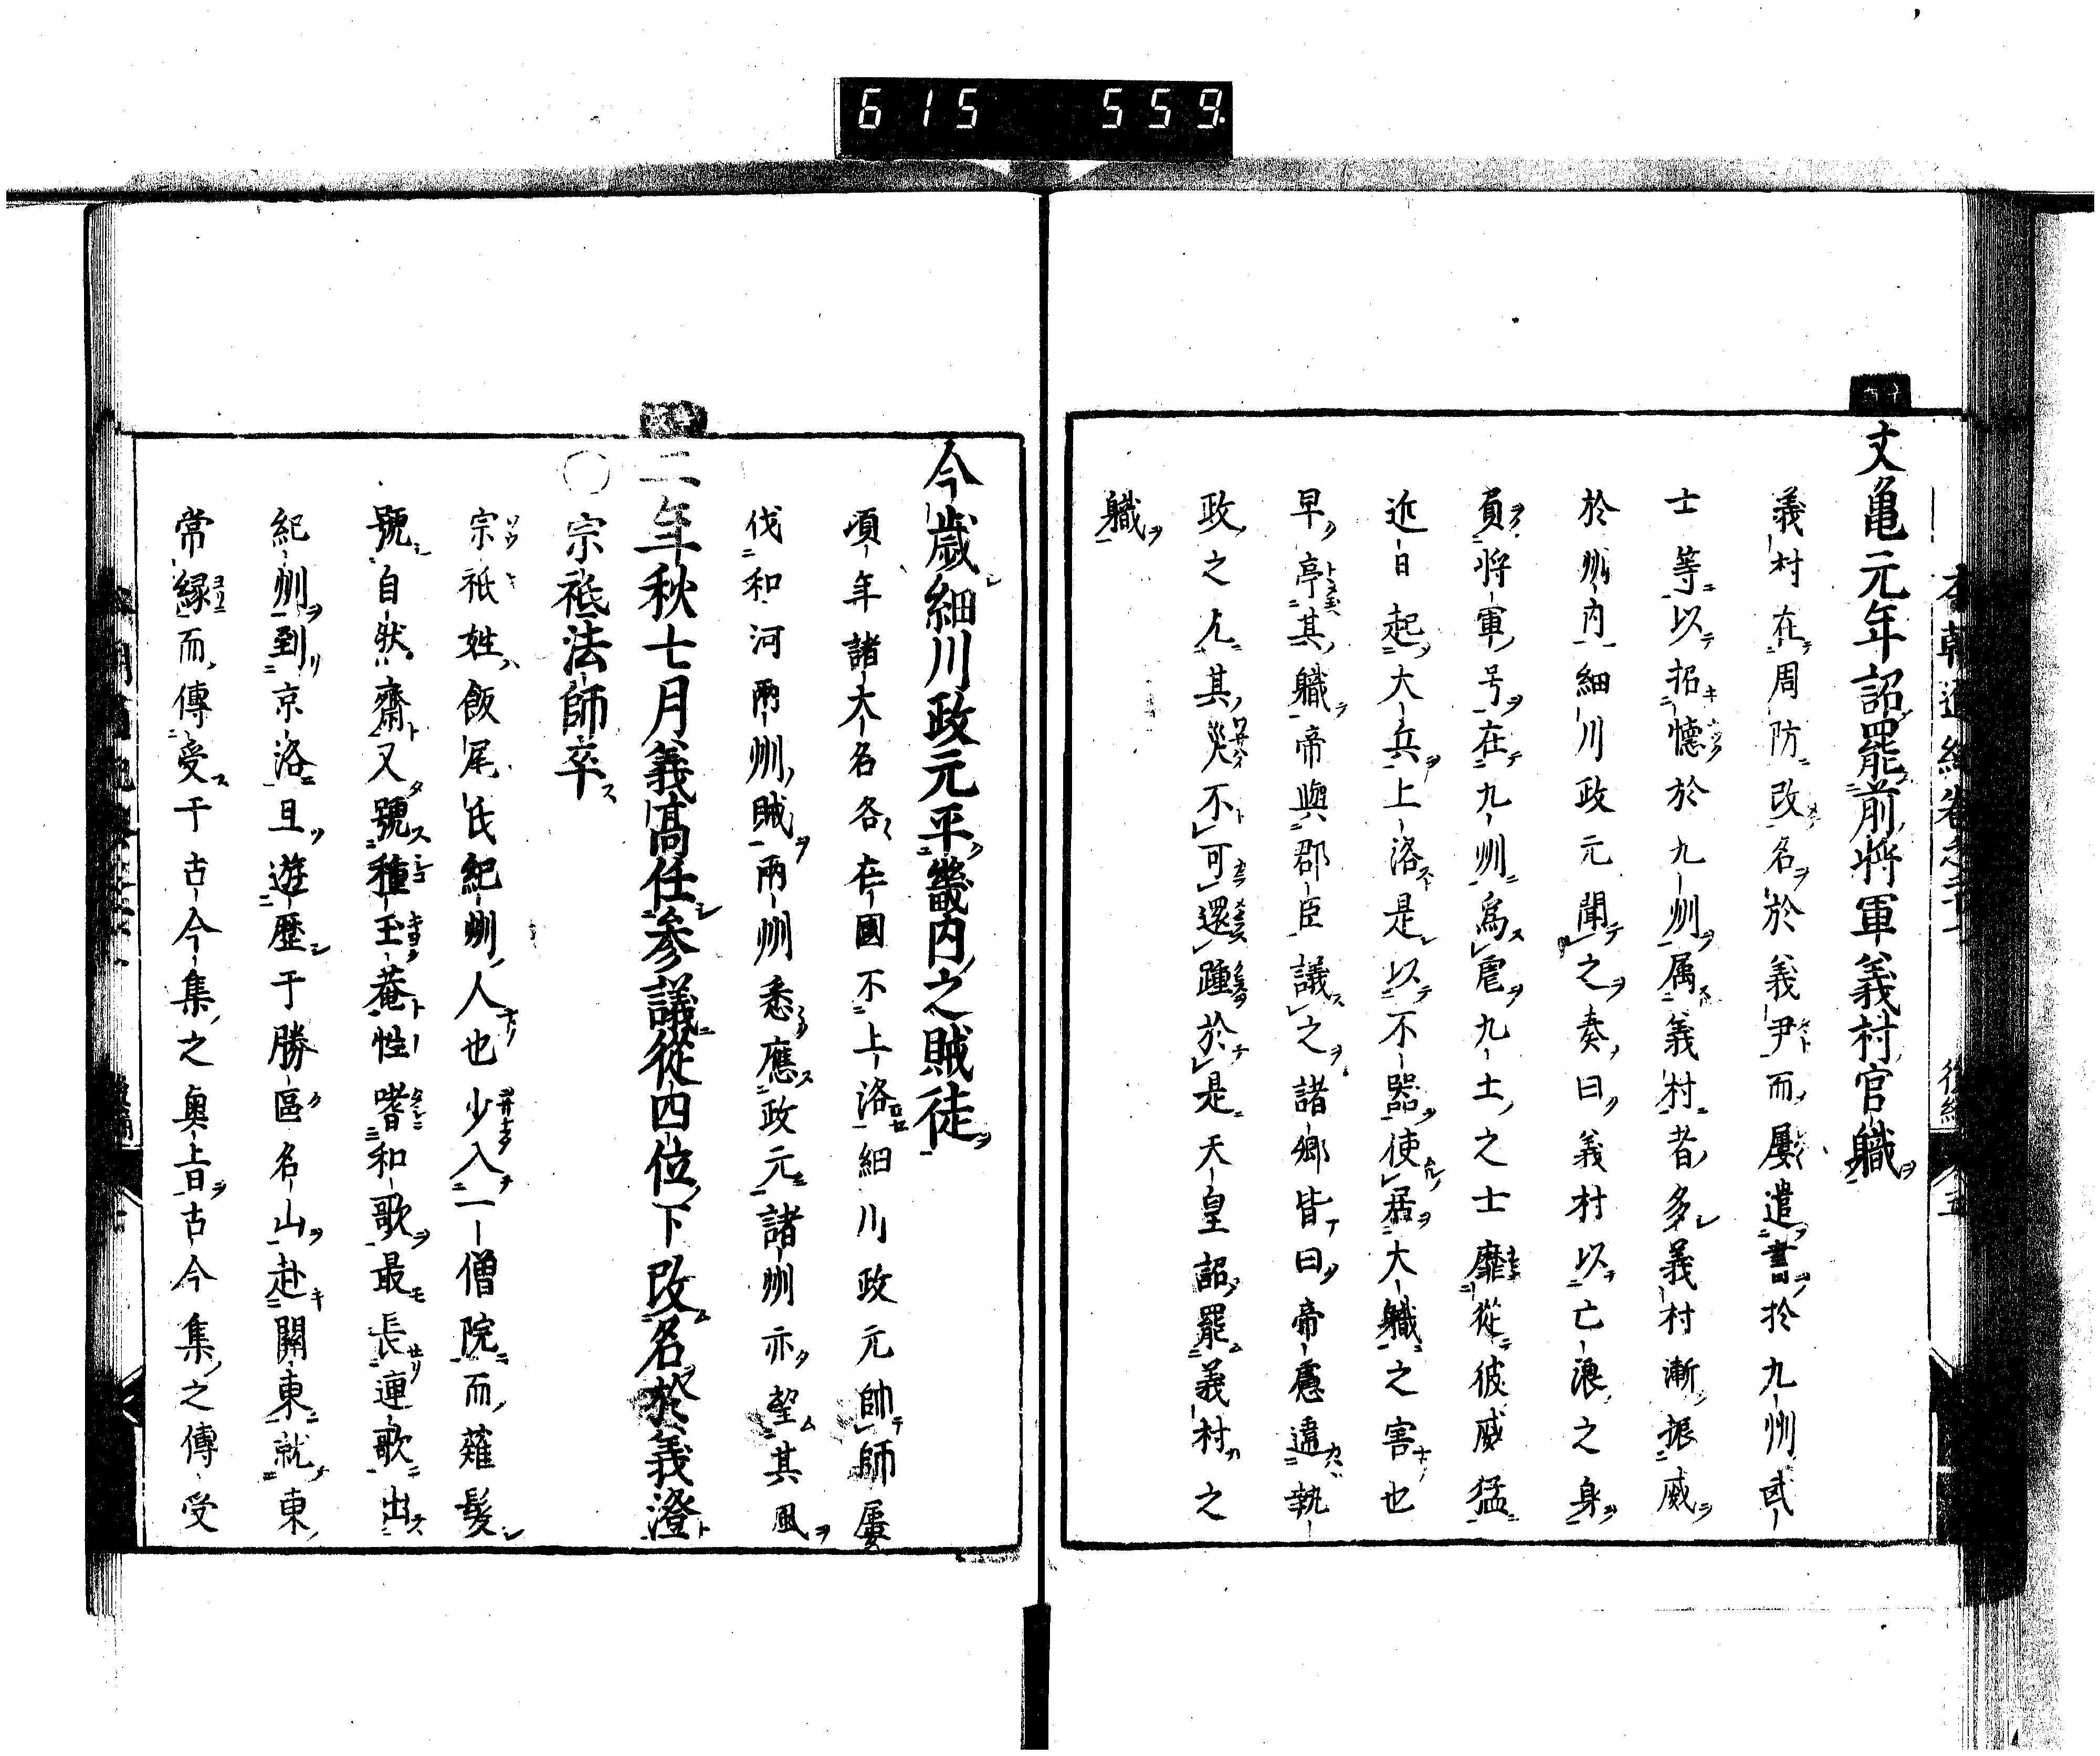 615 559
文亀元年詔罷前将軍義村官職
義村在周防改名於義尹而屢遣書於九州武
士等以招懐於九州属義村者多義村漸振威
於州内細川政元聞之奏曰義村以亡浪之身
負将軍号在九州為虐九土之士靡從彼威猛
近日起大兵上洛是以不器使居大職之害也
早亭其職帝與群臣議之諸卿皆曰帝慮違執
政之人其災不可還踵於是天皇詔罷義村之
職
今歳細川政元平畿内之賊徒
頃年諸大名各在國不上洛細川政元帥師屢
伐和河兩州賊兩州悉應政元諸州亦望其風
二年秋七月義高任参議從四位下改名於義澄
○宗祇法師卒
宗祇姓飯尾氏紀州人也少入一僧院而薙髮
號自然齋又號種玉菴性嗜和歌最長連歌出
紀州到京洛且遊歴于勝區名山赴關東就東
常縁而傳受于古今集之奥旨古今集之傳受